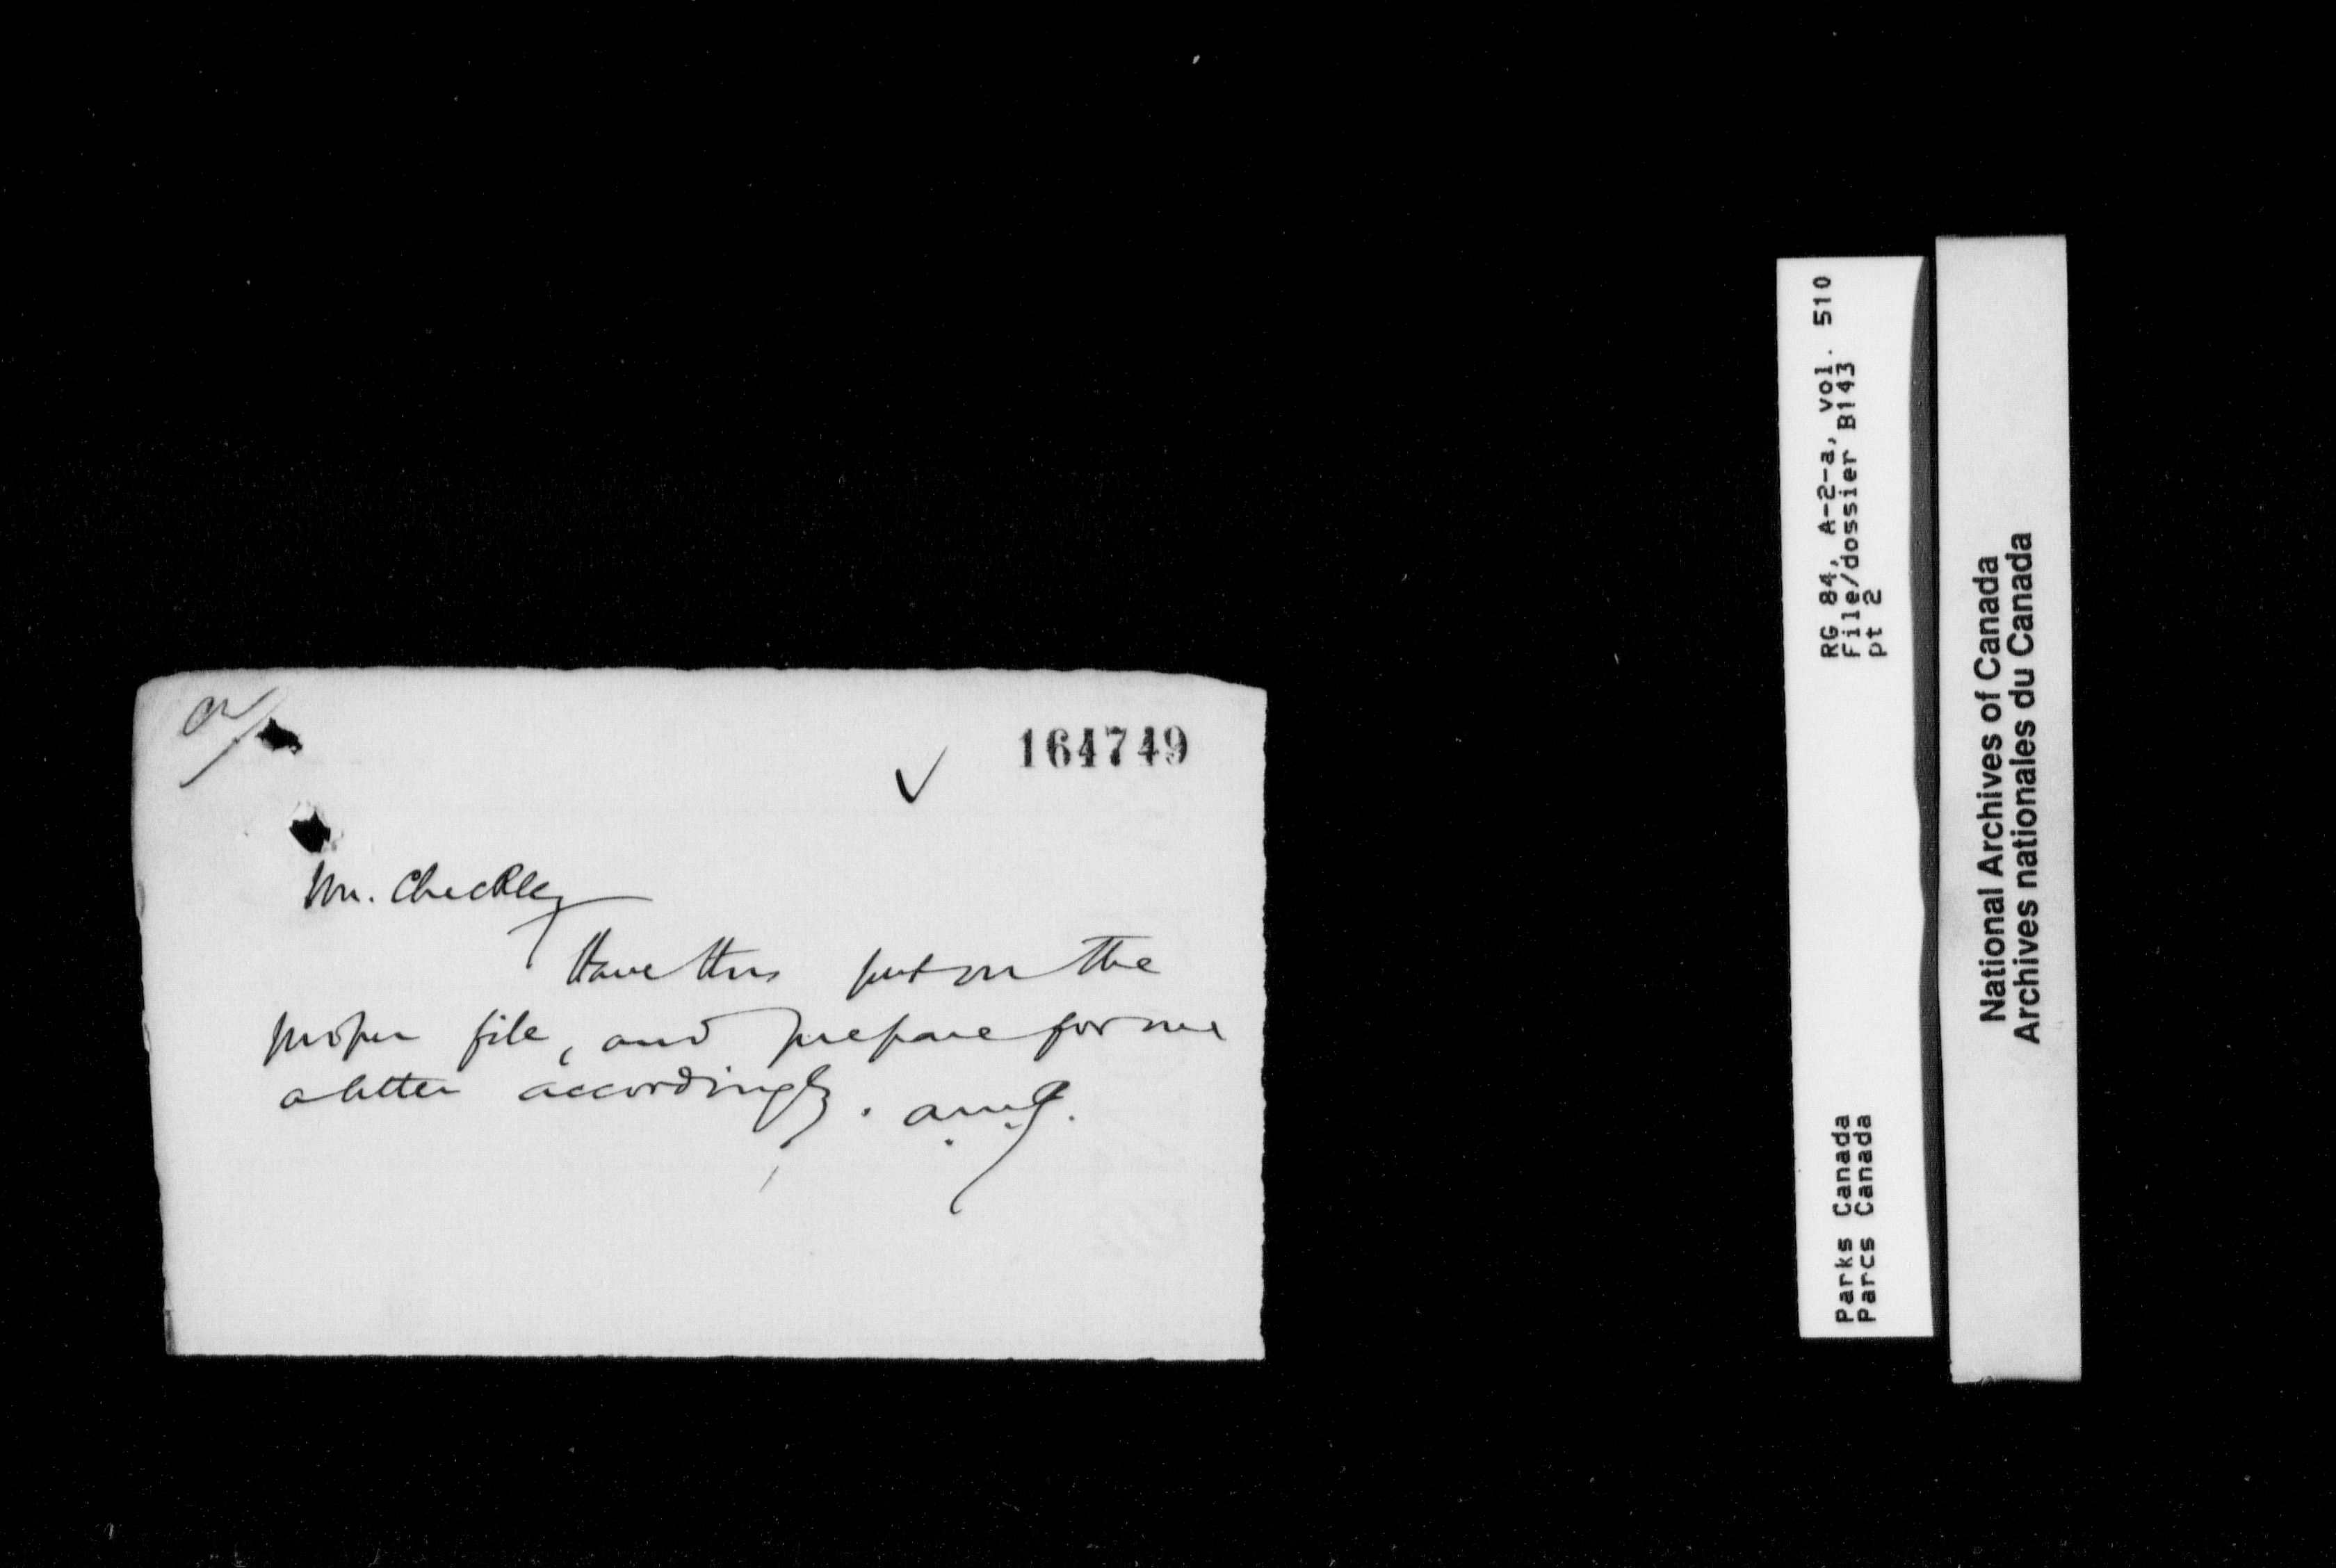 164749
Mr. Checkley
Have this put on the
proper file, and prepare for me
a letter accordingly.
RG 84, A-2-a, vol. 510
File/dossier B143
pt 2
Parks Canada
Parcs Canada
National Archives of Canada
Archives nationales du Canada